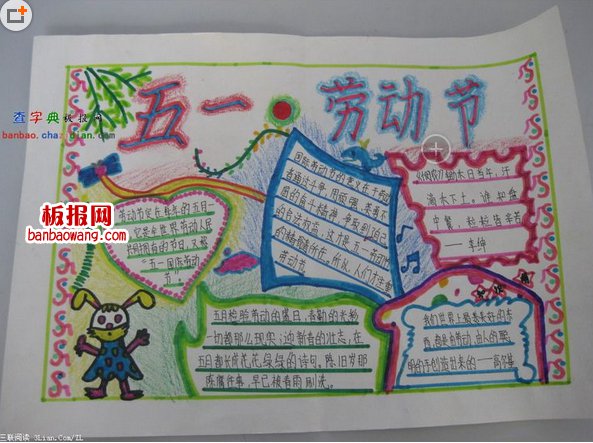 五一 劳动节
查字典 板报网
banbao.chazidian.com
板报网
banbaowang.com
劳动节定在每年的五月一
它是全世界劳动人民
共同拥有的节日,又称
“五一国际劳动
节”
国际劳动节的意义在于劳动
者通过斗争,用顽强、英勇不
屈的奋斗精神,争取到自己
的合法权益,这才是五一劳动节
的精髓所在。所以,人们才注重
劳动节。
《悯农》锄禾日当午,汗
滴禾下土。谁知盘
中餐,粒粒皆辛苦。
——李绅
五月检验劳动的质日,春勤的光彩
一切都那么现实;迎新春的壮志,在
五月都长成花花绿绿的诗句。陈旧岁那
陈腐往事,早已被春雨刷洗。
我们世界上最美好的东
西,都是由劳动、由人的聪
明的手创造出来的——高尔基
三联阅读 3Lian.Com/ZL